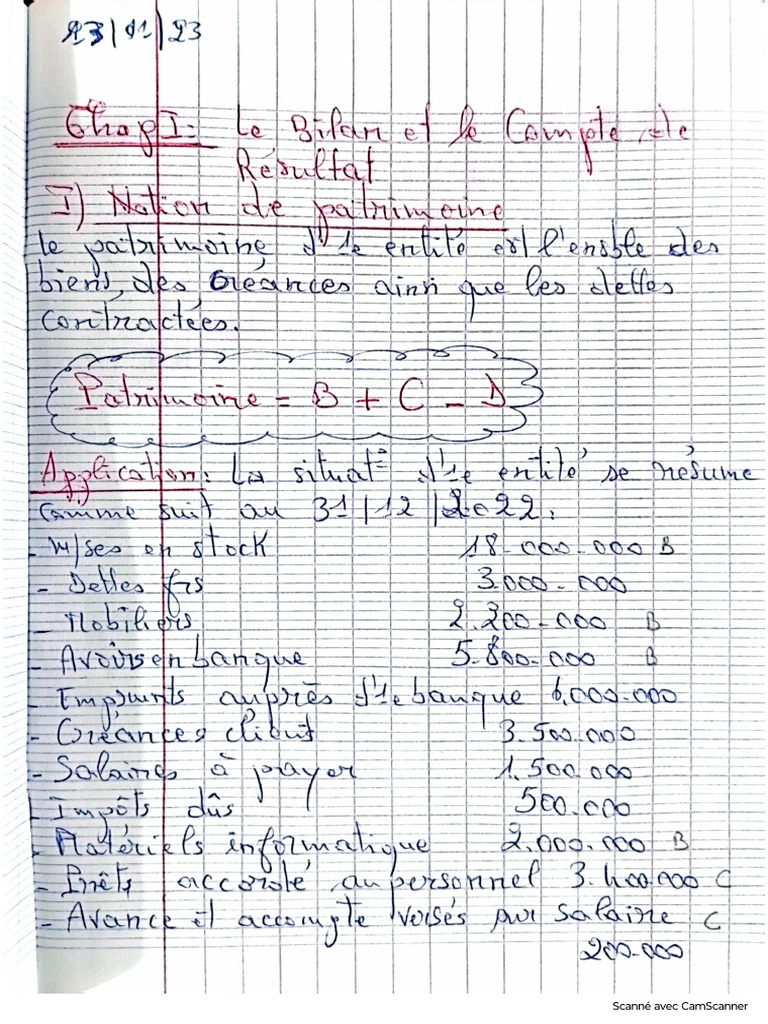 23/11/23
Chap I: Le Bilan et le Compte de
Résultat
I) Notion de patrimoine
le patrimoine d'1e entité est l'ensble des
biens, des créances ainsi que les dettes
contractées.
Patrimoine = B + C - D
Application: La situat° d'1e entité se résume
comme suit au 31/12/2022.
- M/ses en stock 18.000.000 B
- Dettes frs 3.000.000
- Mobiliers 2.200.000 B
- Avoirs en banque 5.800.000 B
- Emprunts auprès d'1e banque 6.000.000
- Créances client 3.500.000
- Salaires à payer 1.500.000
- Impôts dûs 500.000
- Matériels informatique 2.000.000 B
- Prêts accordé au personnel 3.400.000 C
- Avance et accompte versés sur salaire C
200.000
Scanné avec CamScanner